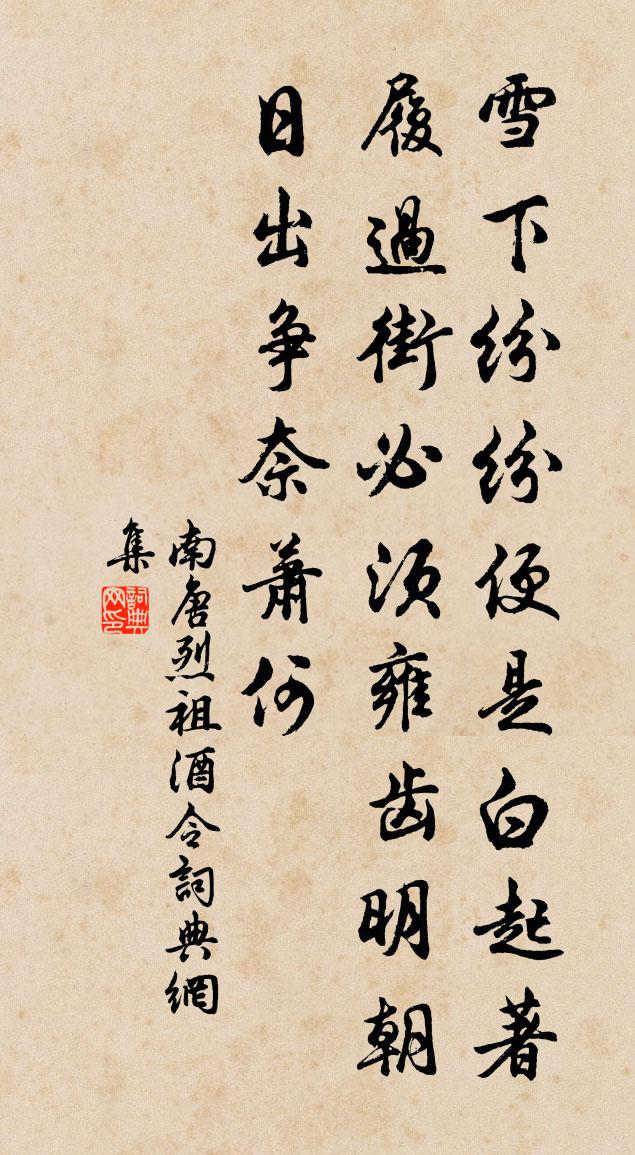 雪下纷纷便是白起著
履過街必须雍齿明朝
日出争奈蕭何
南唐烈祖酒令詞典網
集
詞典
网印